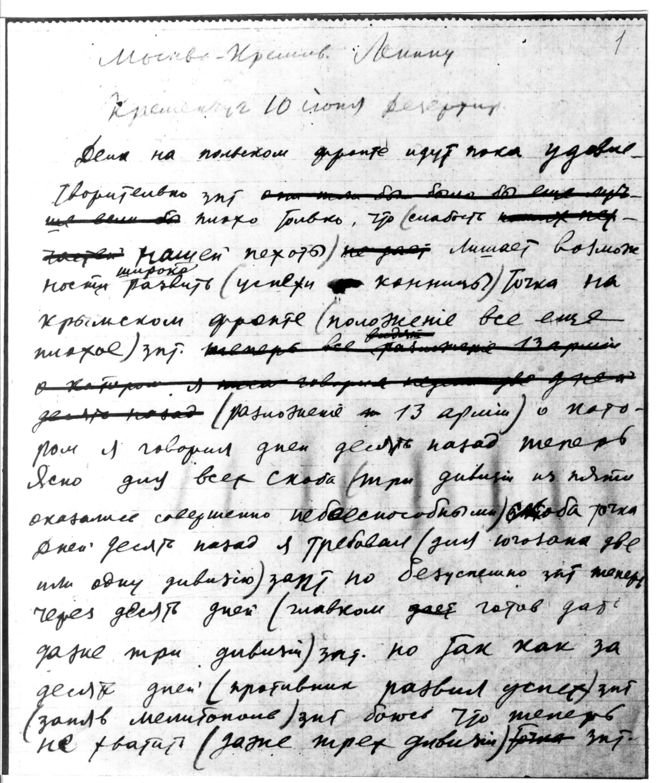 1
Москва-Кремль. Ленину
Кременчуг 10 июня
Дела на польском фронте идут пока удовле-
творительно зпт
плохо только, что (слабость
нашей пехоты) не дает лишает возмож
ности широко развить (успехи конницы) Точка на
крымском фронте (положеніе все еще
плохое) зпт. теперь все видят разложеніе 13 арміи
о котором я говорил дней
десять назад (разложеніе 13 арміи) о кото-
ром я говорил дней десять назад теперь
ясно для всех скоба (три дивизіи из пяти
оказались совершенно небоеспособными) скоба точка
Дней десять назад я требовал (для югозапа две
или одну дивизію) запт но безуспешно зпт теперь
через десять дней (главком дает готов дать
даже три дивизіи) зпт. но так как за
десять дней (противник развил успех) зпт
(занял мелитополь) зпт боюсь что теперь
не хватит (даже трех дивизіи) точка зпт.